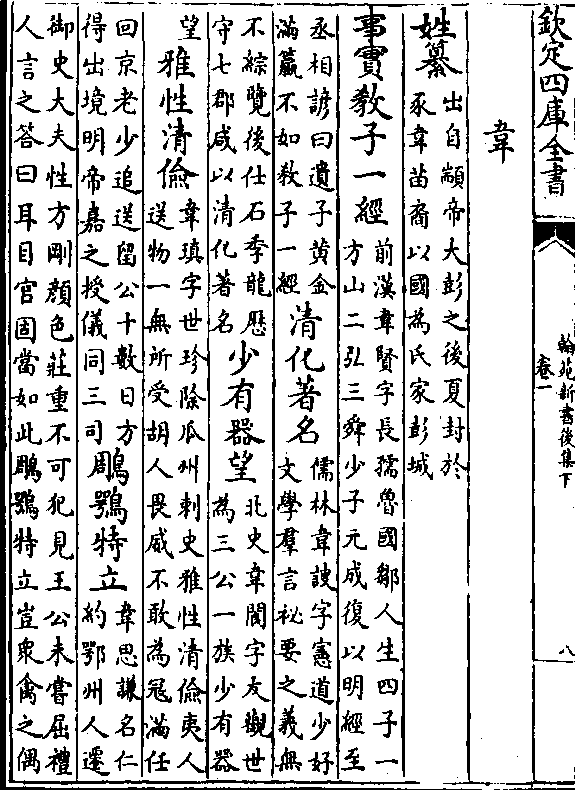 欽定四庫全書
翰苑新書後集下
卷一
八
韋
姓纂
出自顓帝大彭之後夏封於
豕韋苗裔以國為氏家彭城
事實
教子一經
前漢韋賢字長孺魯國鄒人生四子一
方山二弘三舜少子元成復以明經至
丞相諺曰遺子黃金
滿籯不如教子一經
清化著名
儒林韋謏字憲道少好
文學羣言祕要之義無
不綜覽後仕石季龍歷
守七郡咸以清化著名
少有器望
北史韋閬字友觀世
為三公一族少有器
望
雅性清儉
韋瑱字世珍除瓜州刺史雅性清儉夷人
送物一無所受胡人畏威不敢為寇滿任
回京老少追送留公十數日方
得出境明帝嘉之授儀同三司
鵰鶚特立
韋思謙名仁
約鄂州人遷
御史大夫性方剛顏色莊重不可犯見王公未嘗屈禮
人言之答曰耳目官固當如此鵰鶚特立豈衆禽之偶